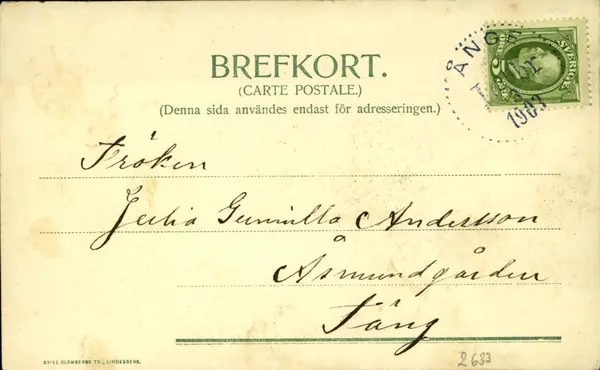 BREFKORT.
(CARTE POSTALE.)
(Denna sida användes endast för adresseringen.)
ÅNGE
1903
5
SVERIGE
Fröken
Julia Gunnilla Andersson
Åsmundgården
Täng
BRÖD. BLOMBERGS TR., LINDESBERG.
2633